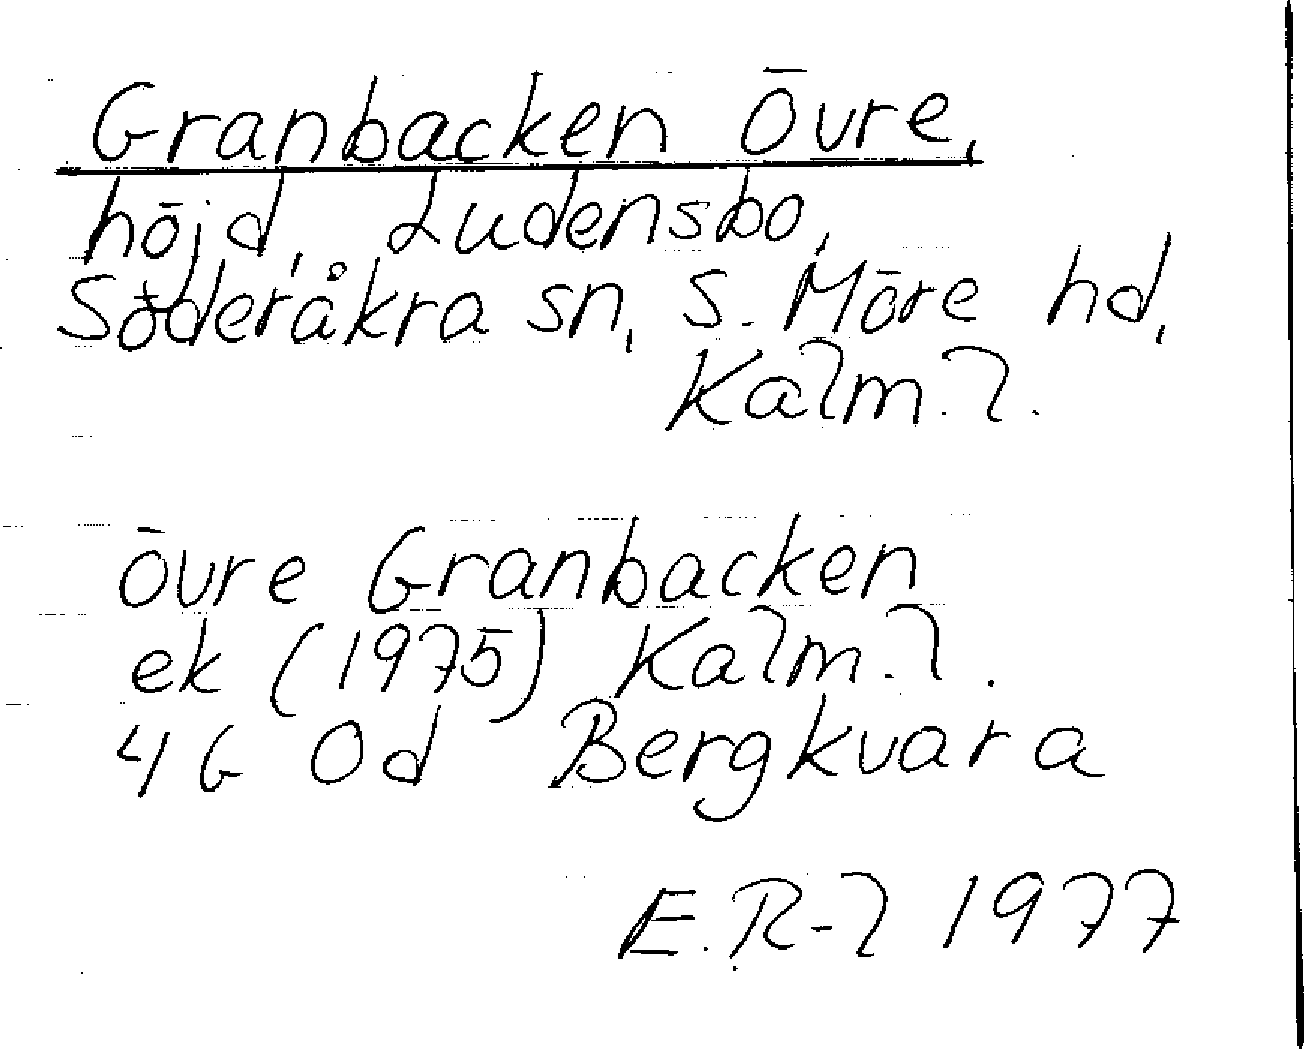 Granbacken Övre,
höjd, Ludensbo,
Söderåkra sn, S. Möre hd,
Kalm. l.
Övre Granbacken
ek (1975) Kalm. l.
4G 0d Bergkvara
E. R-l 1977